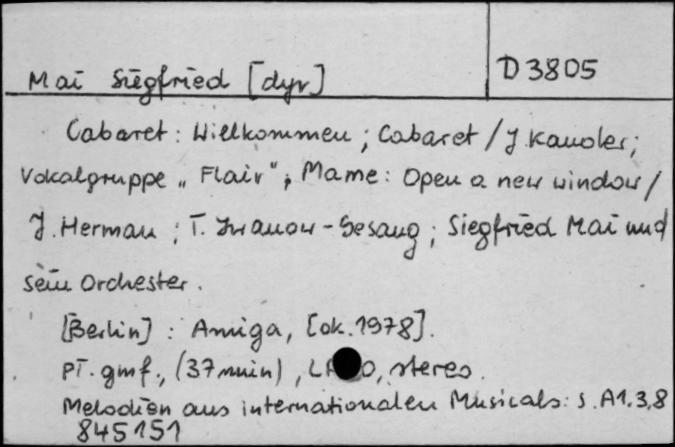 Mai Siegfried [dyr] D 3805
Cabaret: Willkommen; Cabaret / J. Kander;
Vokalgruppe „Flair"; Mame: Open a new window /
J. Herman; T. Iwanow - Gesang; Siegfried Mai und
sein Orchester.
[Berlin]: Amiga, [ok. 1978].
Pł. gmf., (37 min), stereo.
Melodien aus internationalen Musicals: s. A1. 3, 8
845151